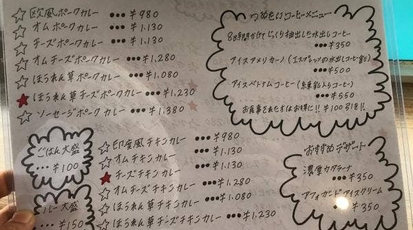 ☆欧風ポークカレー •••¥980
☆オムポークカレー •••¥1.130
☆チーズポークカレー •••¥1.130
☆オムチーズポークカレー •••¥1.280
☆ほうれん草ポークカレー •••¥1.080
★ほうれん草チーズポークカレー •••¥1.230
☆ソーセージポークカレー •••¥1.380
ごはん大盛
•••¥100
ルー大盛
•••¥150
☆印度風チキンカレー •••¥980
☆オムチキンカレー •••¥1.130
★チーズチキンカレー •••¥1.130
☆オムチーズチキンカレー •••¥1.280
☆ほうれん草チキンカレー •••
☆ほうれん草チーズチキンカレー •••¥1.230
コーヒーメニュー
8時間かけてじっくり抽出した水出しコーヒー
•••¥350
アイスアメリカーノ(エスプレッソの水出しコーヒー割)
•••¥500
アイスベトナムコーヒー(練乳入り)
•••¥550
お食事された方はお得に!! ¥100引き!!
おすすめデザート
濃厚カタラーナ
•••¥350
アフォガードアイスクリーム
•••¥350